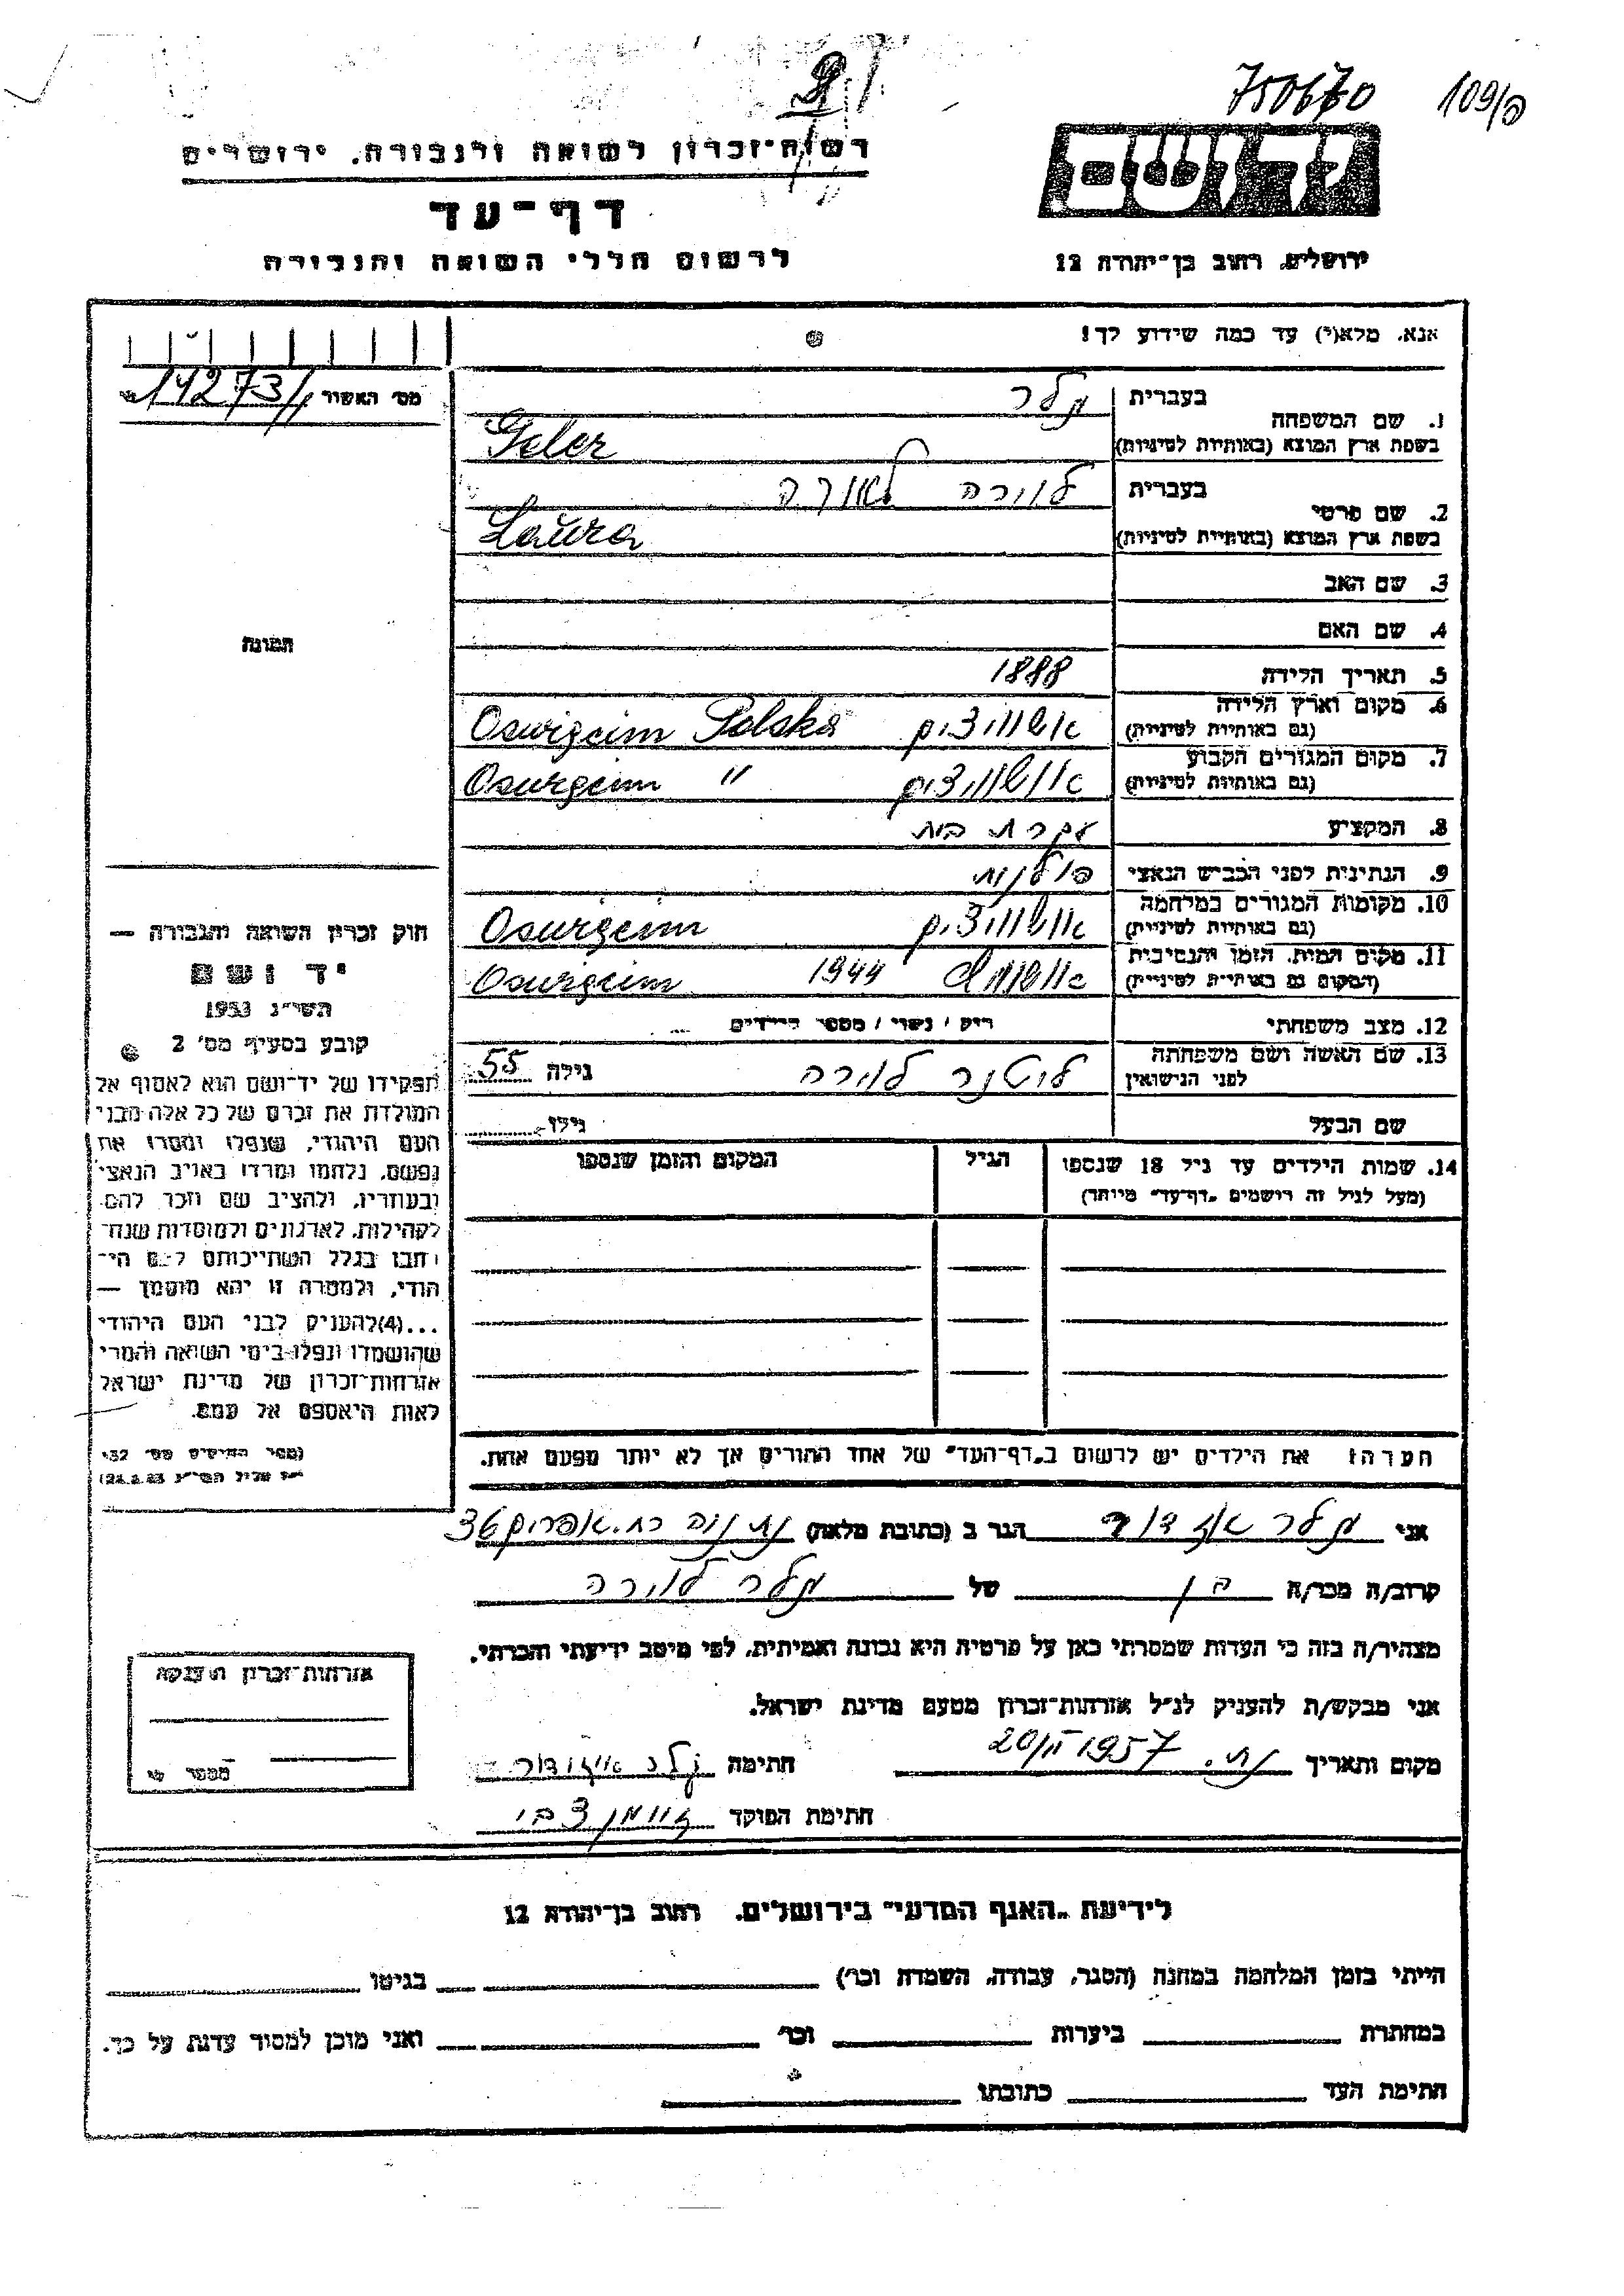 750670 109/ק
רשות־זכרון לשואה ולגבורה, ירושלים
יד ושם
דף־עד
לרשום חללי השואה והגבורה
ירושלים, רחוב בן־יהודה 12
אנא, מלא(י) עד כמה שידוע לך!
מס׳ האשור 14273
בעברית גלר
1. שם המשפחה
בשפת ארץ המוצא (באותיות לטיניות) Geler
בעברית לורה לאורה
2. שם פרטי
בשפת ארץ המוצא (באותיות לטיניות) Laŭra
3. שם האב
4. שם האם
תמונה
5. תאריך הלידה 1888
6. מקום וארץ הלידה
(גם באותיות לטיניות) אושוויצים Oswizcim Polska
7. מקום המגורים הקבוע
(גם באותיות לטיניות) אושוויצים Oswizcim "
8. המקצוע עקרת בית
9. הנתינות לפני הכבוש הנאצי פולנית
10. מקומות המגורים במלחמה
(גם באותיות לטיניות) אושוויצים Oswizcim
11. מקום המות, הזמן והנסיבות
(המקום גם באותיות לטיניות) 1944 Oswizcim
12. מצב משפחתי רווק / נשוי / מספר הילדים ...
13. שם האשה ושם משפחתה
לפני הנישואין ליטנר לורה גילה 55
שם הבעל גילו
14. שמות הילדים עד גיל 18 שנספו הגיל המקום והזמן שנספו
(מעל לגיל זה רושמים „דף־עד" מיוחד)
חוק זכרון השואה והגבורה —
יד ושם
תשי״ג 1953
קובע בסעיף מס׳ 2
תפקידו של יד־ושם הוא לאסוף אל
המולדת את זכרם של כל אלה מבני
העם היהודי, שנפלו ומסרו את
נפשם, נלחמו ומרדו באויב הנאצי
ובעוזריו, ולהציב שם וזכר להם,
לקהילות, לארגונים ולמוסדות שנח־
רבו בגלל השתייכותם לעם הי־
הודי, ולמטרה זו יהא מוסמך —
...(4)להעניק לבני העם היהודי
שהושמדו ונפלו בימי השואה והמרי
אזרחות־זכרון של מדינת ישראל
לאות היאספם אל עמם.
(ספר החוקים מס׳ 132,
הערה! את הילדים יש לרשום ב„דף־העד" של אחד ההורים אך לא יותר מפעם אחת.
אני גלר הגר ב (כתובת מלאה) נתניה רח. אפרים 36
קרוב/ה מכר/ה בן של גלר לורה
מצהיר/ה בזה כי העדות שמסרתי כאן על פרטיה היא נכונה ואמיתית, לפי מיטב ידיעתי והכרתי.
אני מבקש/ת להעניק לנ״ל אזרחות־זכרון מטעם מדינת ישראל.
מקום ותאריך נת. 20/II 1957 חתימה גלר
חתימת הפוקד צבי
אזרחות־זכרון הוענקה
מספר
לידיעת „האגף המדעי" בירושלים, רחוב בן־יהודה 12
הייתי בזמן המלחמה במחנה (הסגר, עבודה, השמדה וכו׳) בגיטו
במחתרת ביערות וכו׳ ואני מוכן למסור עדות על כך.
חתימת העד כתובתו